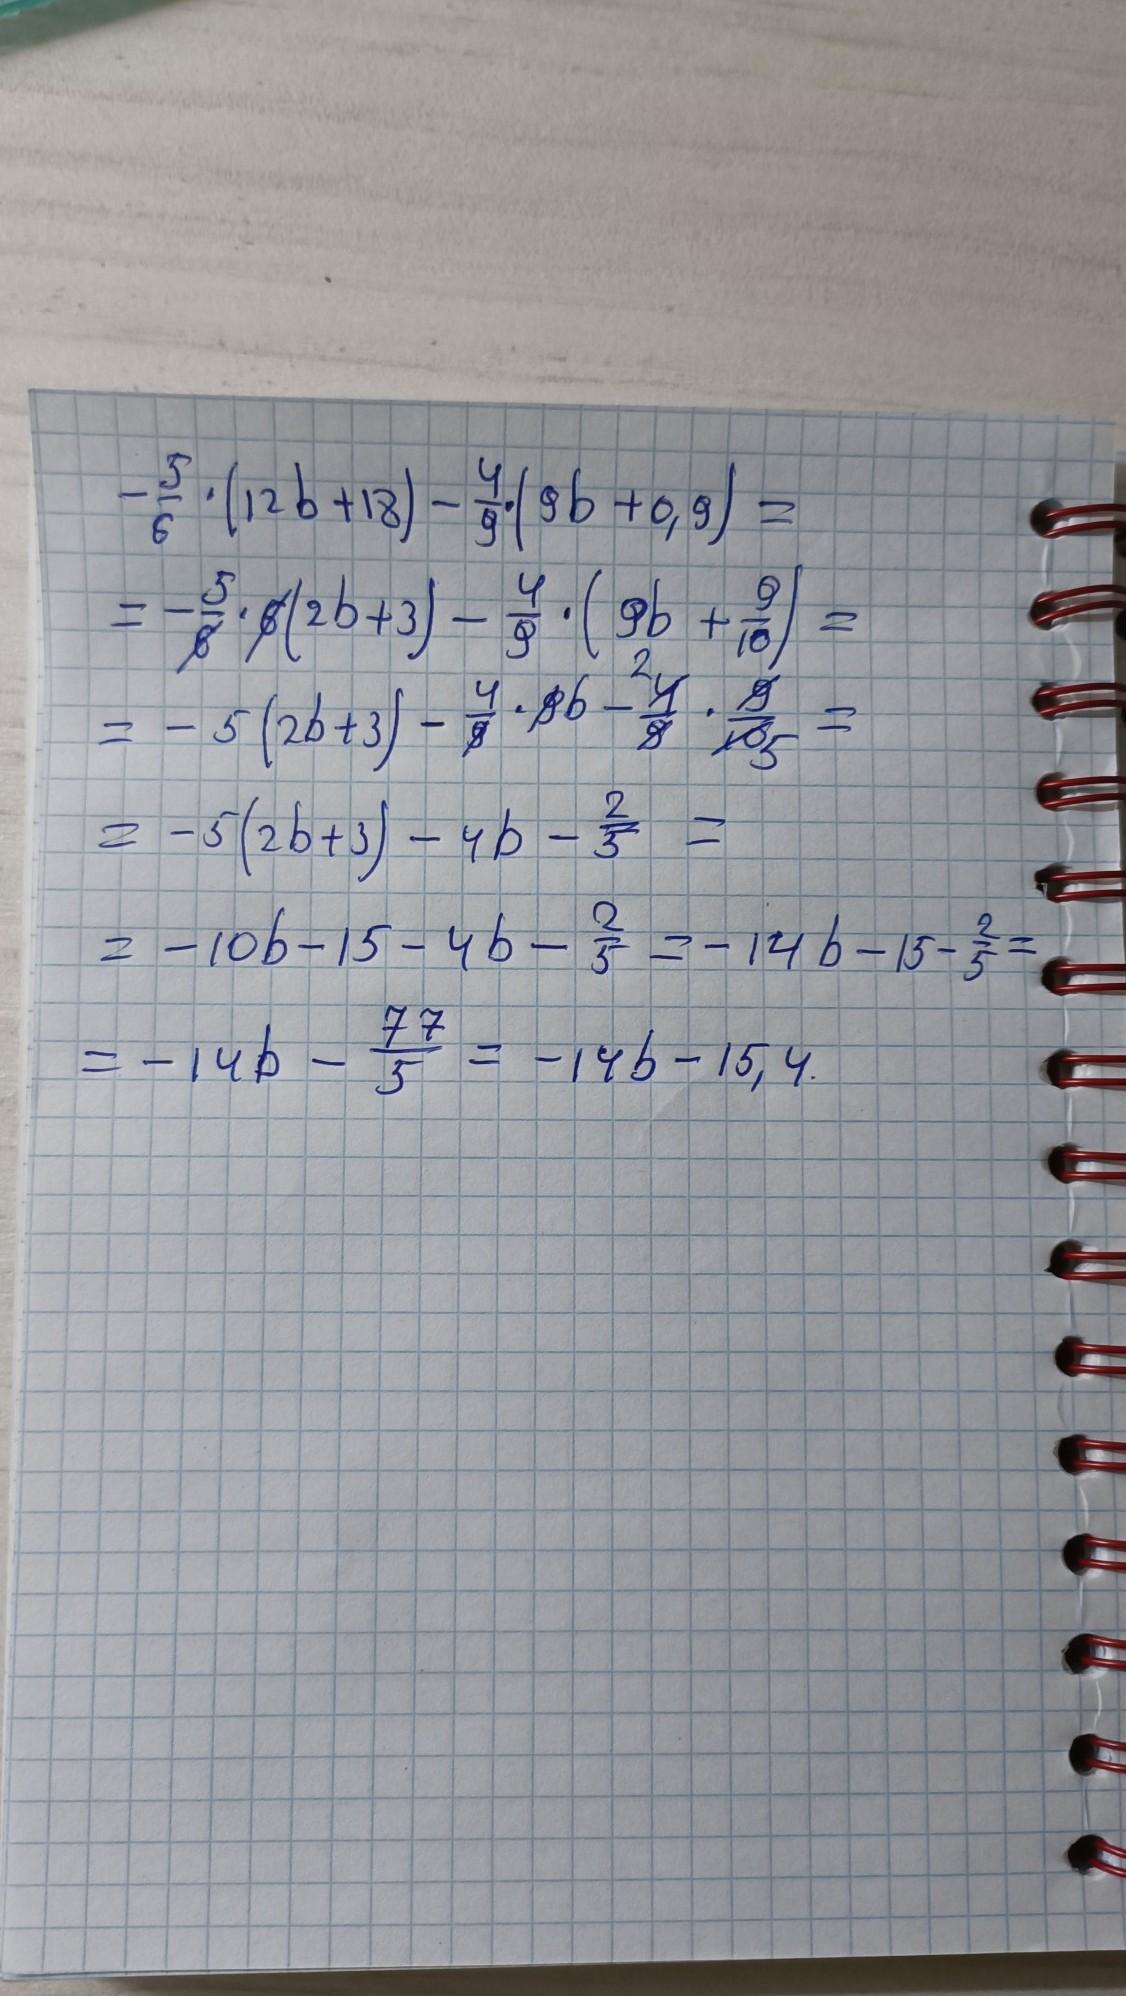 -5/6·(12b+18)-4/9·(9b+0,9)=
=-5/6·6(2b+3)-4/9·(9b+9/10)=
=-5(2b+3)-4/9·9b-4/9·9/10=
=-5(2b+3)-4b-2/5=
=-10b-15-4b-2/5=-14b-15-2/5=
=-14b-77/5=-14b-15,4.